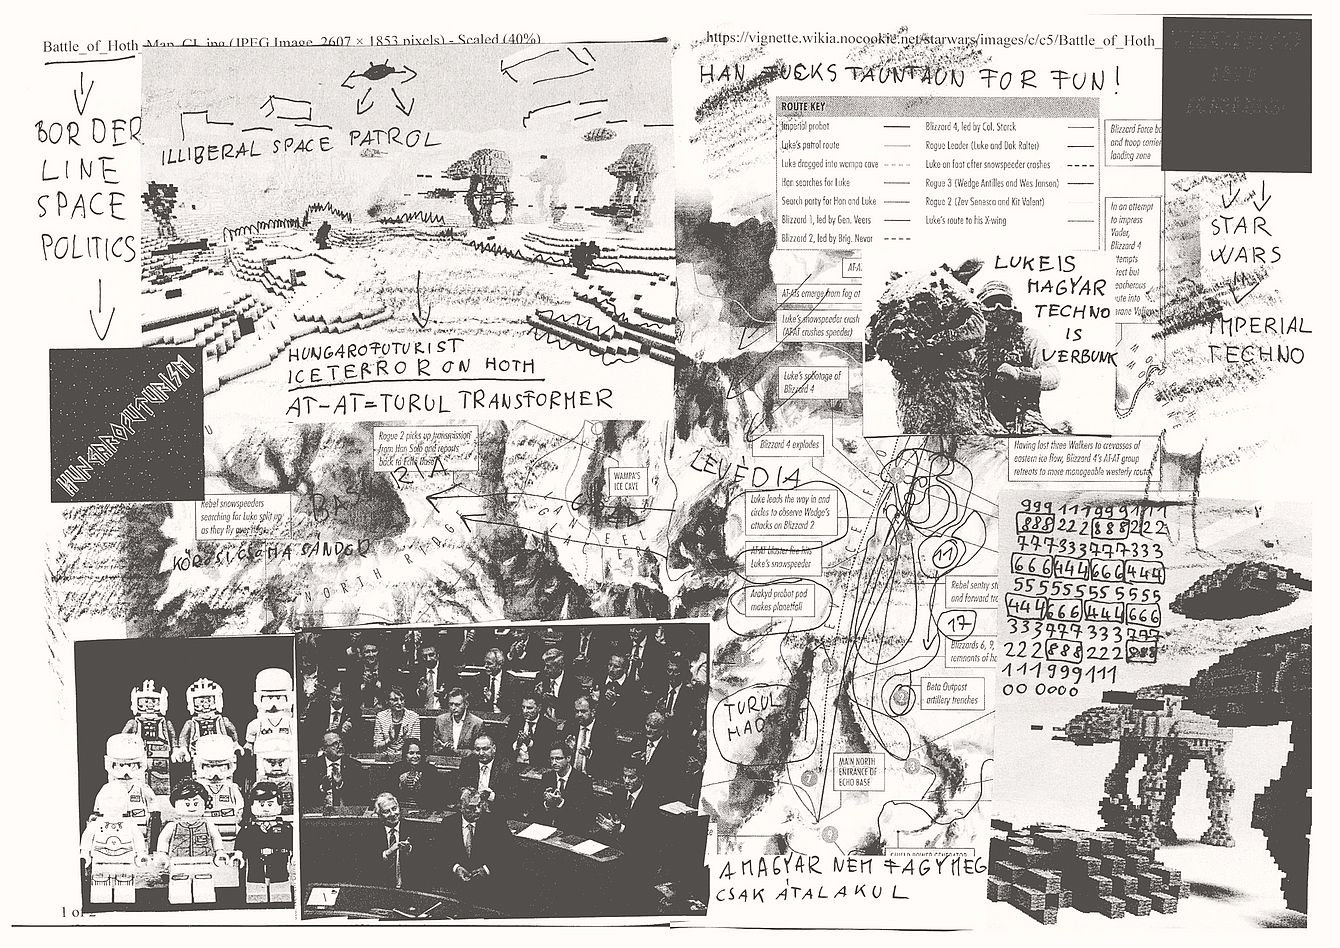 Battle_of_Hoth_Map_CL.jpg (JPEG Image, 2607 × 1853 pixels) - Scaled (40%)
https://vignette.wikia.nocookie.net/starwars/images/c/c5/Battle_of_Hoth_
BORDER
LINE
SPACE
POLITICS
HUNGAROFUTURISM
ILLIBERAL SPACE PATROL
HUNGAROFUTURIST
ICETERROR ON HOTH
AT-AT=TURUL TRANSFORMER
HAN FUCKS TAUNTAUN FOR FUN!
ROUTE KEY
Imperial probot
Luke's patrol route
Luke dragged into wampa cave
Han searches for Luke
Search party for Han and Luke
Blizzard 1, led by Gen. Veers
Blizzard 2, led by Brig. Nevar
Blizzard 4, led by Col. Starck
Rogue Leader (Luke and Dak Ralter)
Luke on foot after snowspeeder crashes
Rogue 3 (Wedge Antilles and Wes Janson)
Rogue 2 (Zev Senesca and Kit Valent)
Luke's route to his X-wing
Blizzard Force
and troop
landing zone
In an attempt
to impress
Vader,
Blizzard 4
STAR
WARS
IMPERIAL
TECHNO
LUKE IS
MAGYAR
TECHNO
IS
VERBUNK
AT-ATs emerge from fog at
Luke's snowspeeder crash
(AT-AT crushes speeder)
Luke's sabotage of
Blizzard 4
Blizzard 4 explodes
Having lost three Walkers to crevasses of
eastern ice flow, Blizzard 4's AT-AT group
retreats to more manageable westerly route
Rogue 2 picks up transmission
from Han Solo and reports
back to Echo Base
WAMPA'S
ICE CAVE
LEVEDIA
Rebel snowspeeders
searching for Luke split up
as they fly over
KŐRÖSI CSOMA SÁNDOR
NORTH RIDGE
Luke leads the way in and
circles to observe Wedge's
attacks on Blizzard 2
AT-AT blaster fire hits
Luke's snowspeeder
Arakyd probot pod
makes planetfall
11
17
Rebel sentry
and forward
Blizzards 6, 9,
remnants of
Beta Outpost
artillery trenches
TURUL
MAIN NORTH
ENTRANCE OF
ECHO BASE
999111999111
888222888222
777333777333
666444666444
555555555555
444666444666
333777333777
222888222888
111999111
00 0000
SHIELD POWER GENERATOR
A MAGYAR NEM FAGY MEG
CSAK ÁTALAKUL
1 of 2